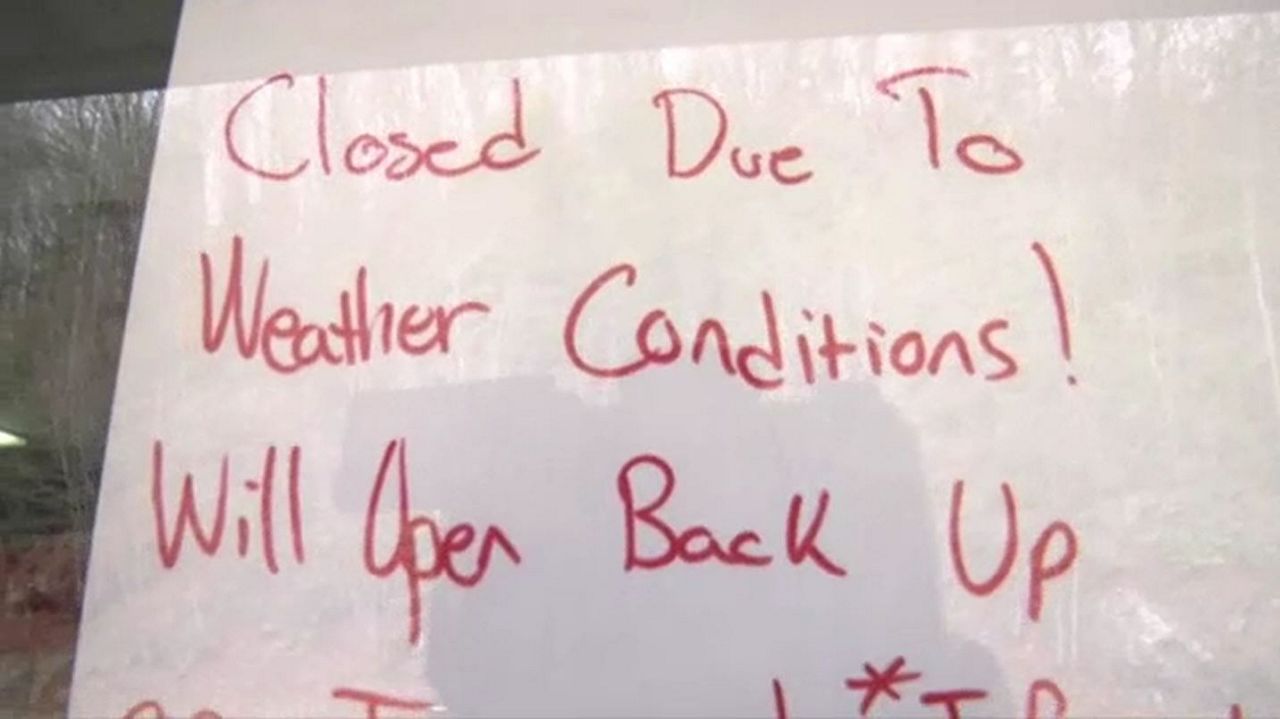 Closed Due To
Weather Conditions!
Will Open Back Up